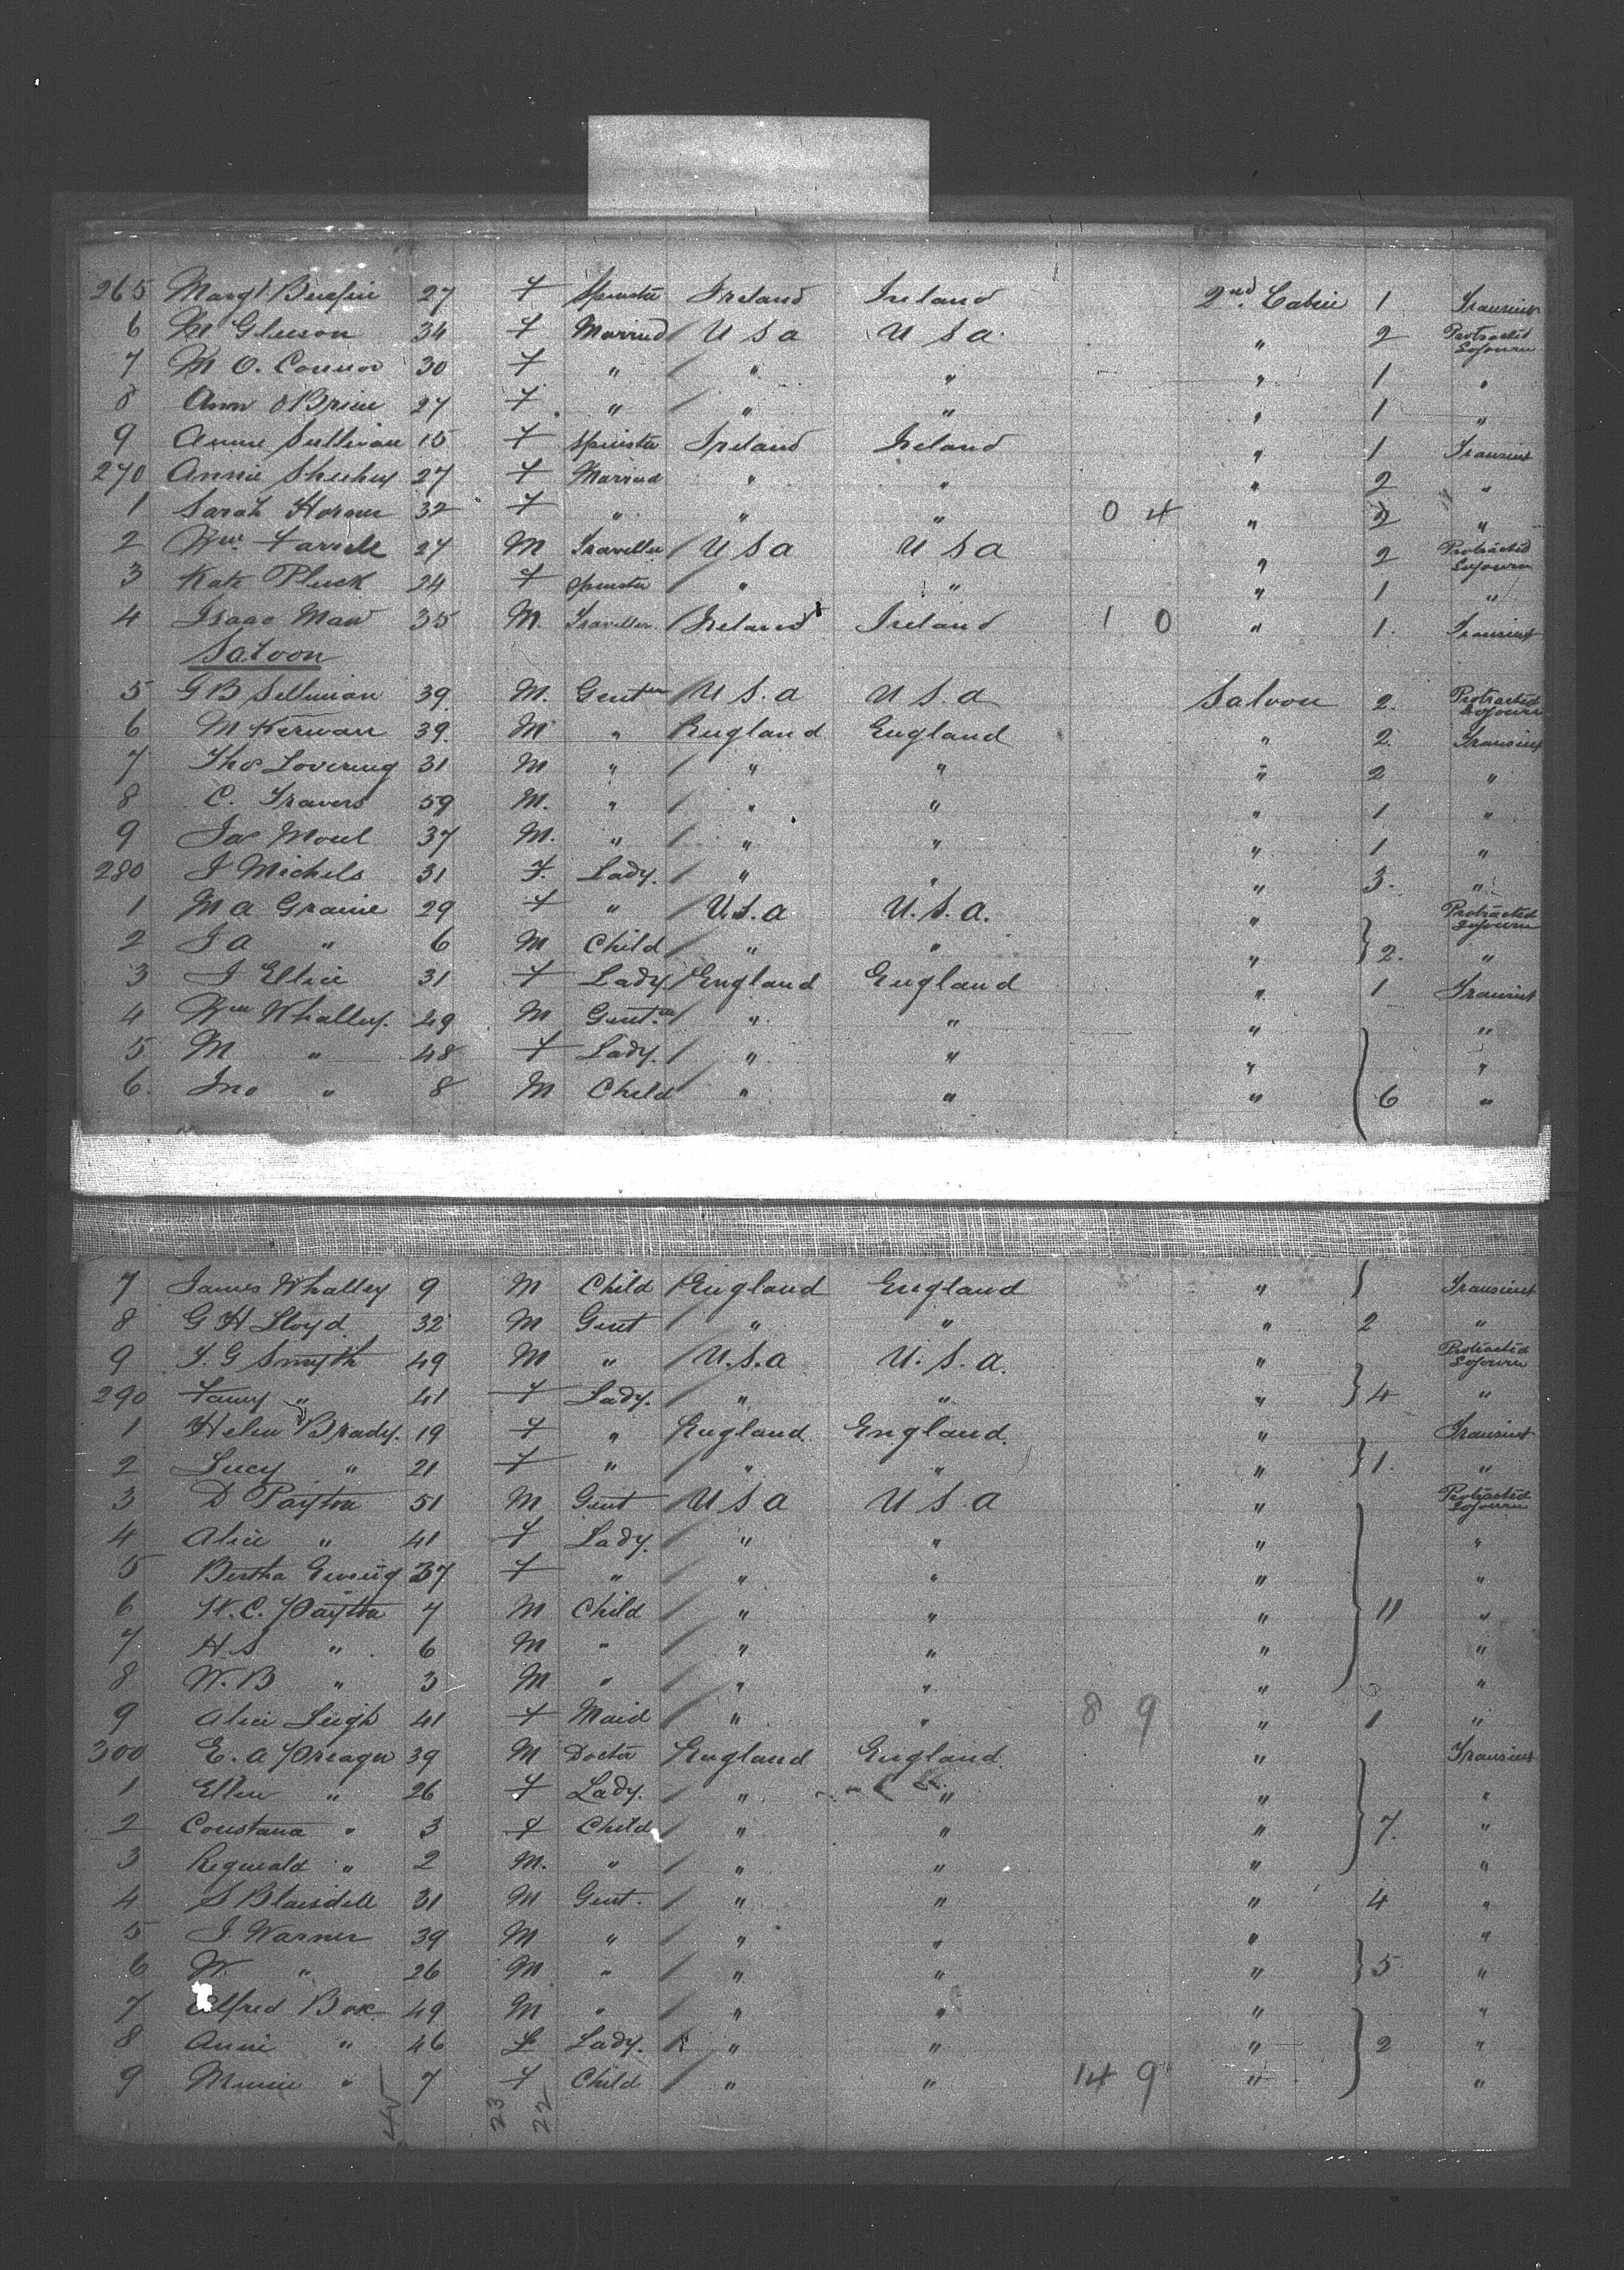 265 Margt 27 F Spinster Ireland Ireland 2nd Cabin 1 Transient
6 M Gleeson 34 F Married / U S a U S a " 2 Protracted Sojourn
7 M O. Connor 30 F " / " " " 1 "
8 Ann O Brien 27 F " / " " " 1 "
9 Annie Sullivan 15 F Spinster Ireland Ireland " 1 Transient
270 Annie Sheehey 27 F Married " " " 2 "
1 Sarah 32 F " " " 0 4 " 2 "
2 Wm Farrell 27 M Traveller / U S a U S a " 2 Protracted Sojourn
3 Kate Pluck 24 F Spinster / " " " 1 "
4 Isaac Maw 35 M. Traveller. Ireland x Ireland 1 0 " 1. Transient
Saloon
5 G B Sellman 39 M. Gentm / U S. a U S. a Saloon 2. Protracted Sojourn
6 M Kerwan 39. M " England England " 2 Transient
7 Thos Lovering 31 M " / " " " 2 "
8 C. Travers 59 M. " / " " " 1 "
9 Jas Moul 37 M. " / " " " 1 "
280 J Michels 31 F. Lady. / " " " 3. "
1 M a 29 F " U.S.a U.S.a. " Protracted Sojourn
2 J a " 6 M Child / " " " } 2. "
3 J 31 F Lady / England England " 1 Transient
4 Wm Whalley. 49 M Gent.m / " " " "
5 M " 48 F Lady. / " " " "
6. Jno " 8 M Child / " " " 6 "
7 James Whalley 9 M Child / England England " } Transient
8 G H Lloyd. 32 M Gent / " " " 2 "
9 49 M " / U.S.a U.S.a. " Protracted Sojourn
290 Fanny " 41 F Lady. / " " " } 4 "
1 Helen Brady. 19 F " England. England. " Transient
2 Lucy " 21 F " / " " " } 1. "
3 D Payton 51 M Gent U S a U S. a " Protracted Sojourn
4 Alice " 41 F Lady. / " " " "
5 Bertha Ewing 37 F " / " " " "
6 W. C. Payton 7 M Child / " " " } 11 "
7 H. S " 6 M " / " " " "
8 W. B " 3 M " / " " " "
9 Alice Leigh 41 F Maid / " " 8 9 " 1 "
300 E. a Preager 39 M Doctor England England. " Transient
1 Ellen " 26 F Lady. / " " " "
2 " 3 F Child / " " " } 7. "
3 Reginald " 2 M. " / " " " "
4 S Blaisdell 31 M Gent. / " " " 4 "
5 J. Warner 39 M " / " " " "
6 W. " 26 M " / " " " } 5. "
7 Alfred Box 49 M " / " " " "
8 Annie " 46 F Lady. / " " " } 2 "
9 " 7 F Child / " " 14 9 " "
45 23 22